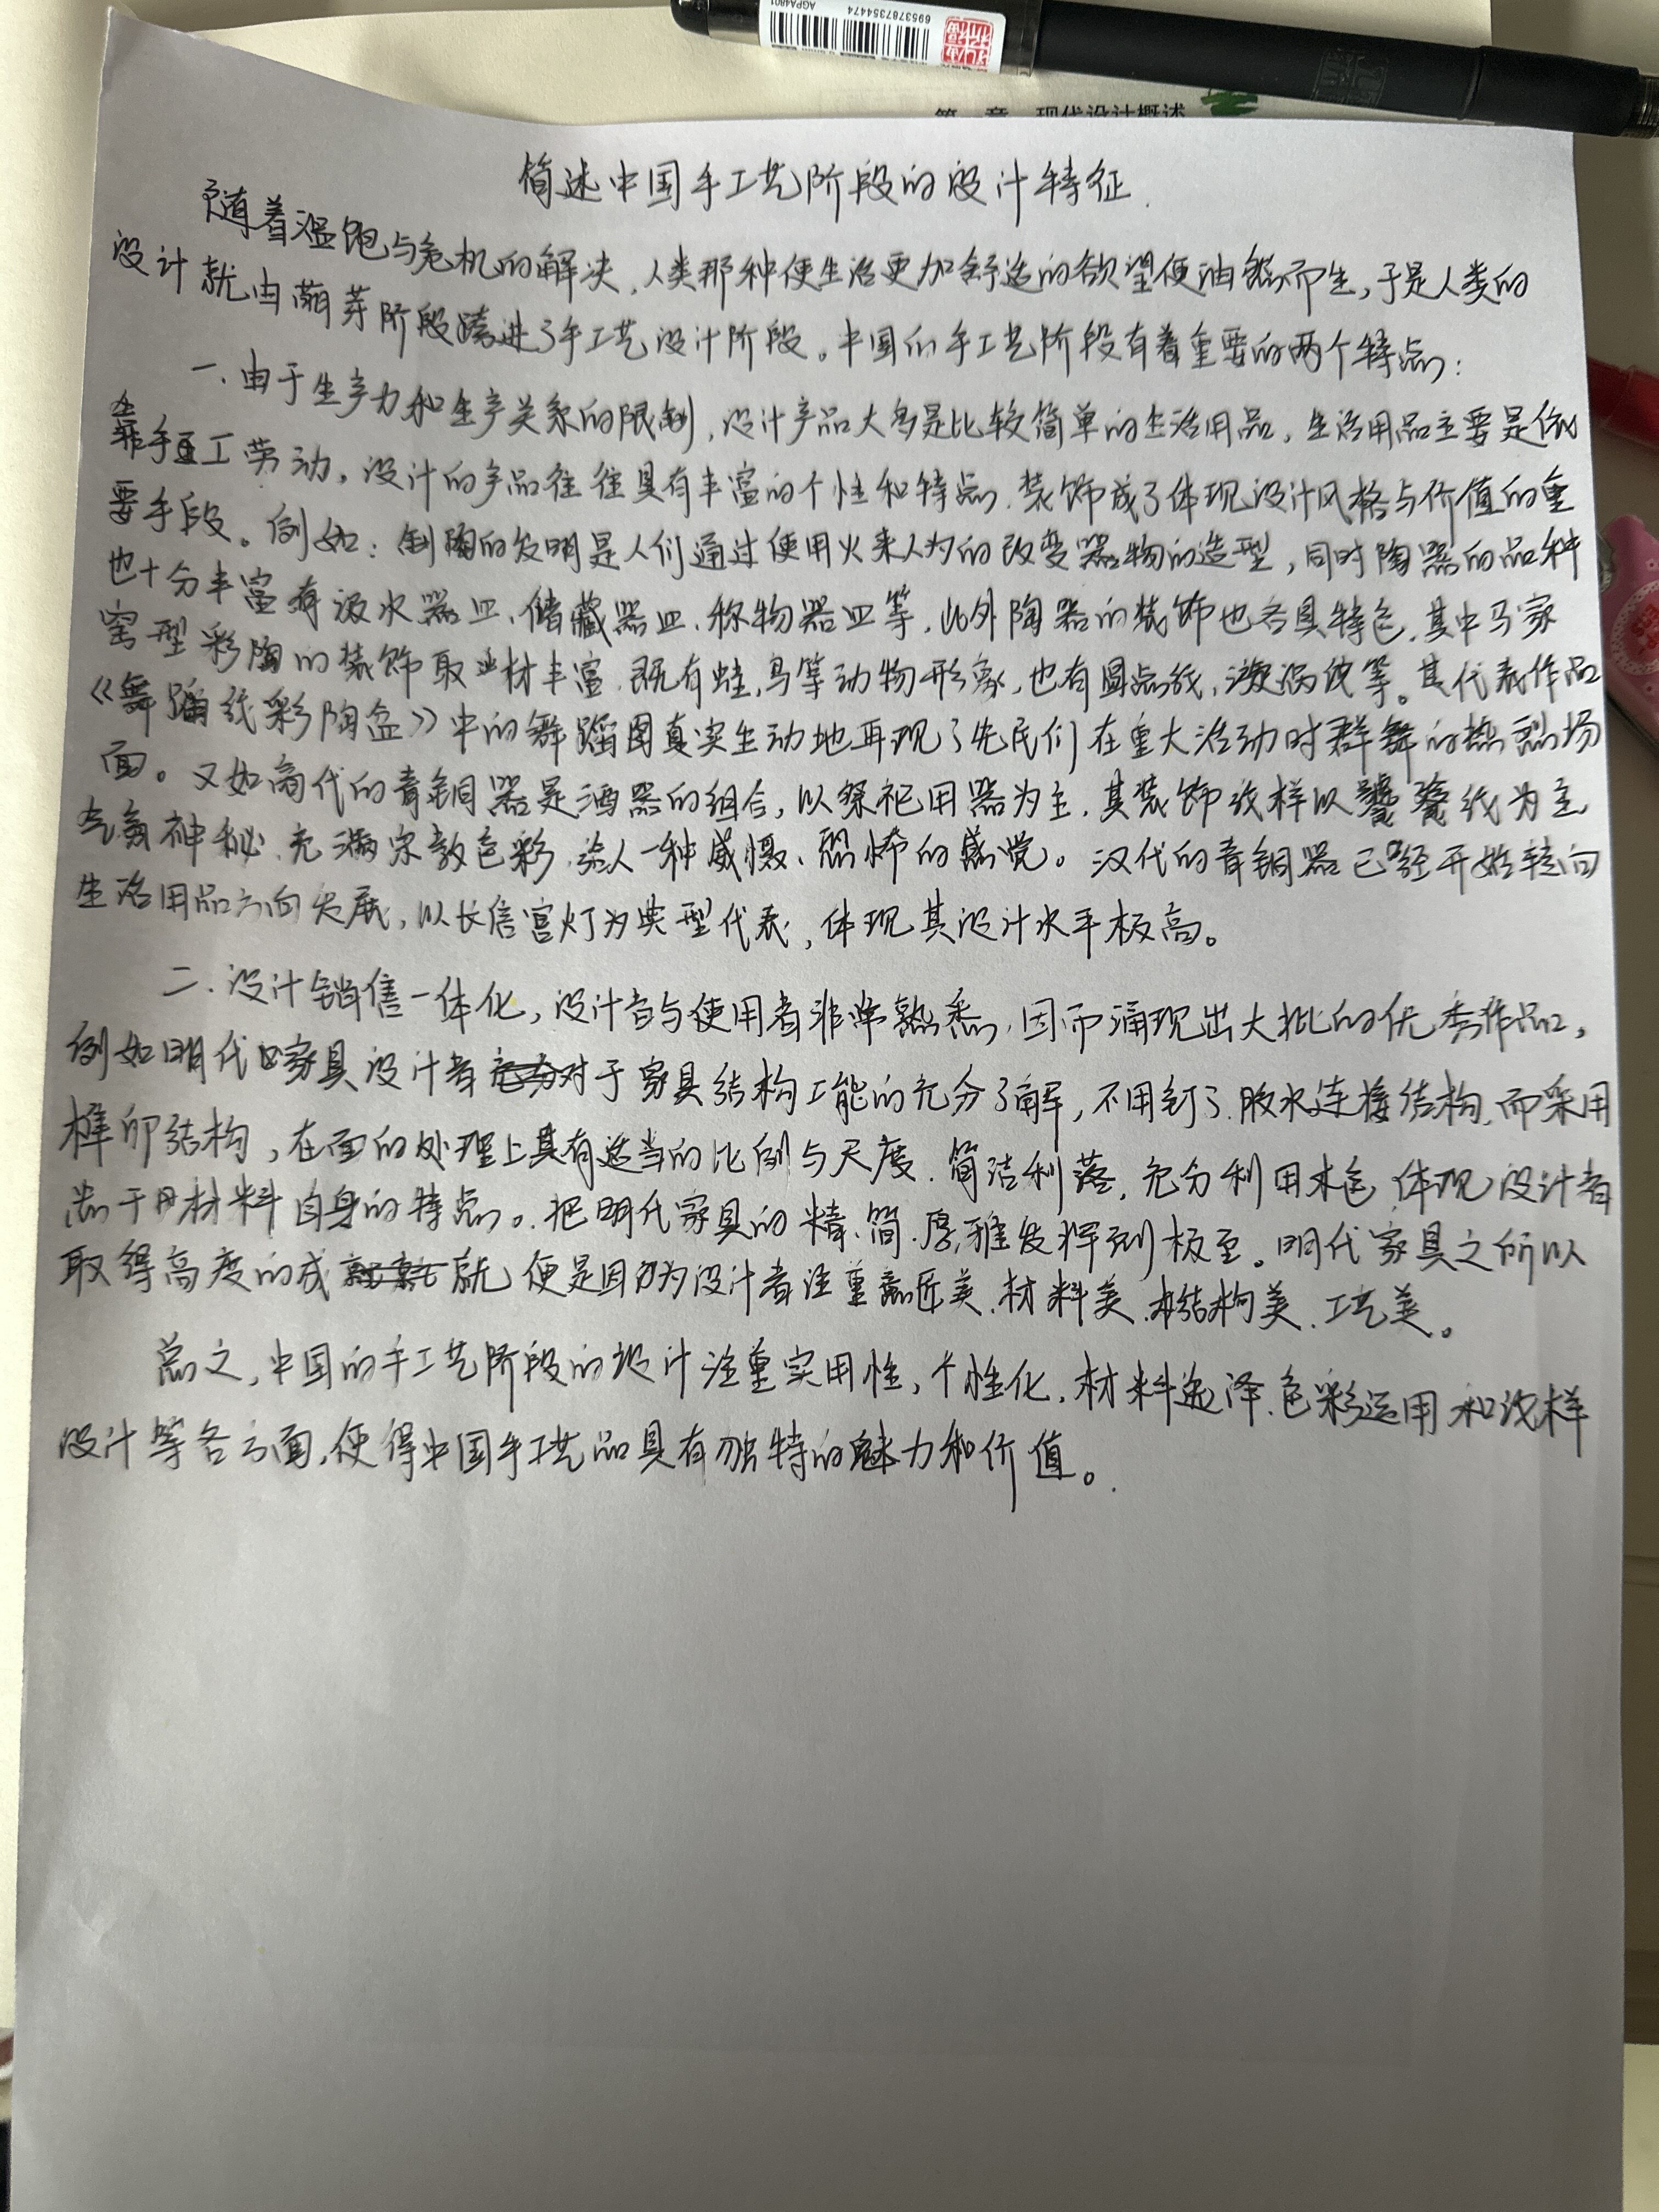 AGPA4801
6953787354474
第一章 现代设计概述
简述中国手工艺阶段的设计特征.
随着温饱与危机的解决,人类那种使生活更加舒适的欲望便油然而生,于是人类的
设计就由萌芽阶段跨进了手工艺设计阶段。中国的手工艺阶段有着重要的两个特点:
一.由于生产力和生产关系的限制,设计产品大多是比较简单的生活用品,生活用品主要是依
靠手工劳动,设计的产品往往具有丰富的个性和特点,装饰成了体现设计风格与价值的重
要手段。例如:制陶的发明是人们通过使用火来人为的改变器物的造型,同时陶器的品种
也十分丰富有汲水器皿、储藏器皿、称物器皿等,此外陶器的装饰也各具特色,其中马家
窑型彩陶的装饰取材丰富,既有蛙,鸟等动物形象,也有圆点纹,漩涡纹等。其代表作品
《舞蹈纹彩陶盆》中的舞蹈图真实生动地再现了先民们在重大活动时群舞的热烈场
面。又如商代的青铜器是酒器的组合,以祭祀用器为主,其装饰纹样以饕餮纹为主
气氛神秘,充满宗教色彩,给人一种威慑、恐怖的感觉。汉代的青铜器已经开始转向
生活用品方向发展,以长信宫灯为典型代表,体现其设计水平极高。
二.设计销售一体化,设计者与使用者非常熟悉,因而涌现出大批的优秀作品,
例如明代家具设计者对于家具结构工能的充分了解,不用钉子、胶水连接结构,而采用
榫卯结构,在面的处理上具有适当的比例与尺度,简洁利落,充分利用木色,体现设计者
热于用材料自身的特点。把明代家具的精、简、厚、雅发挥到极至。明代家具之所以
取得高度的成就,便是因为设计者注重意匠美、材料美、结构美、工艺美。
总之,中国的手工艺阶段的设计注重实用性,个性化,材料选泽,色彩运用和纹样
设计等各方面,使得中国手工艺品具有独特的魅力和价值。